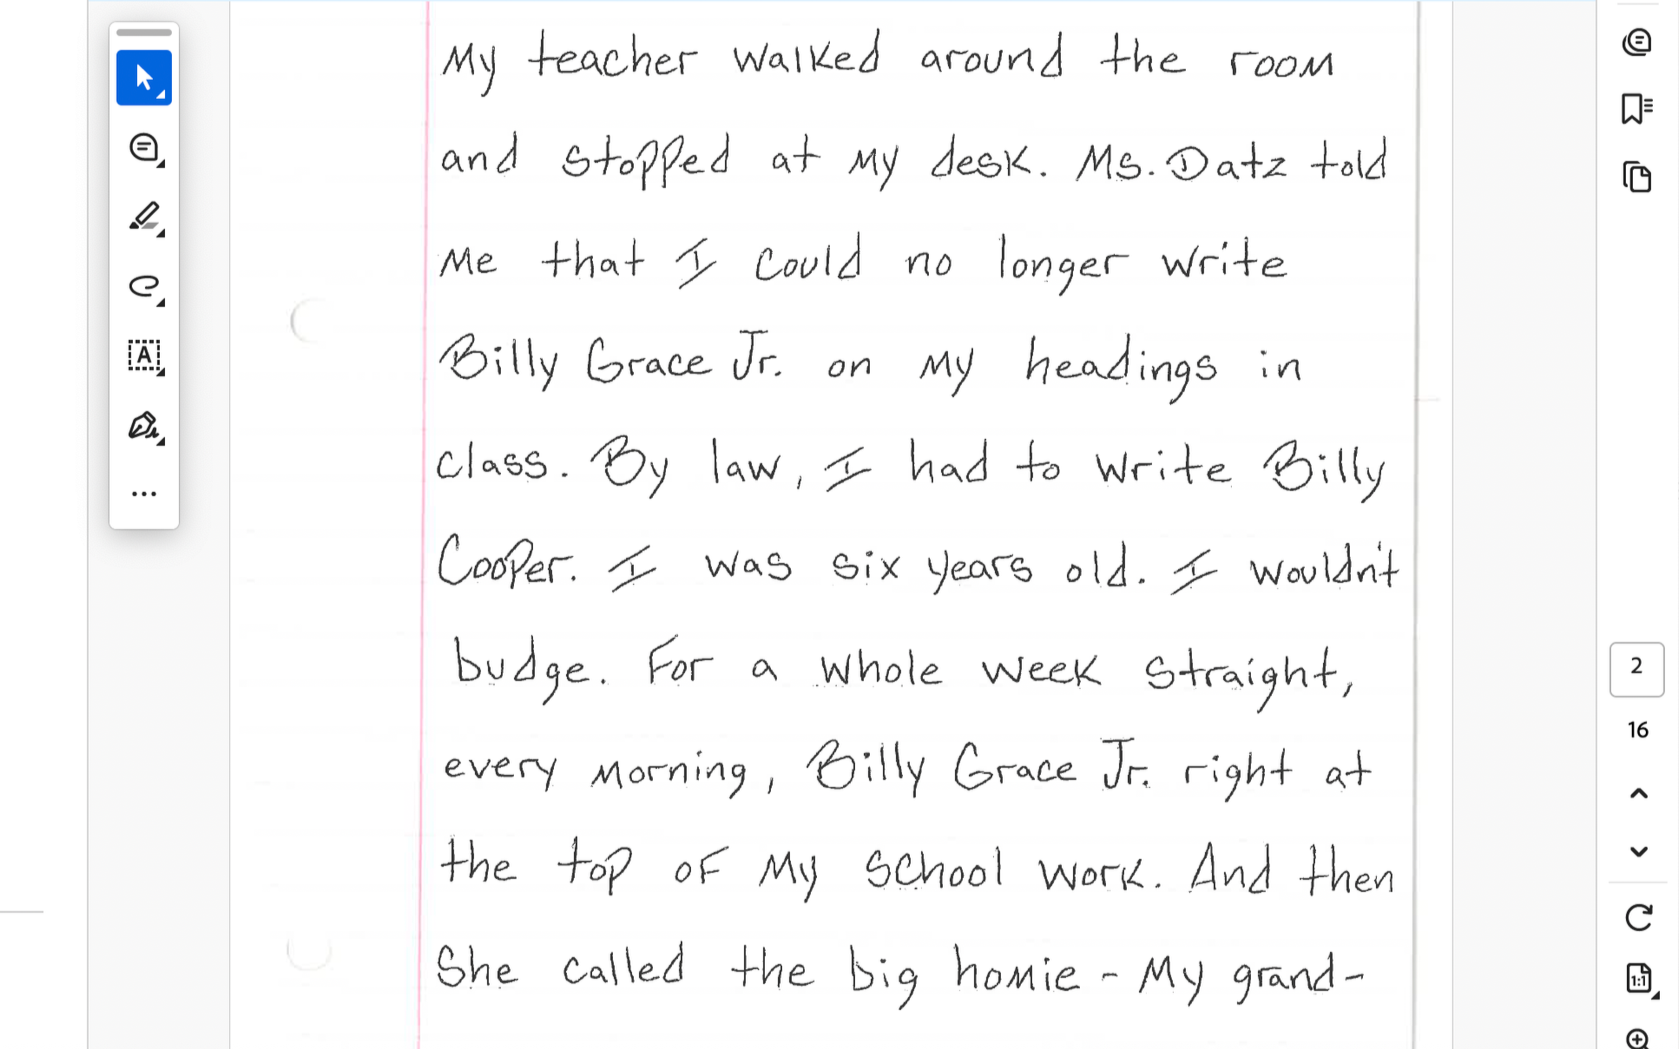 My teacher walked around the room
and stopped at my desk. Ms. Datz told
me that I could no longer write
Billy Grace Jr. on my headings in
class. By law, I had to write Billy
Cooper. I was six years old. I wouldn't
budge. For a whole week straight,
every morning, Billy Grace Jr. right at
the top of my school work. And then
She called the big homie - My grand-
2
16
A
1:1
...